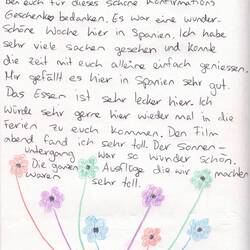 bei euch für dieses schöne Konfirmations
Geschenk bedanken. Es war eine wunder-
schöne Woche hier in Spanien. Ich habe
sehr viele sachen gesehen und konnte
die zeit mit euch alleine einfach geniessen.
Mir gefällt es hier in Spanien sehr gut.
Das Essen ist sehr lecker hier. Ich
würde sehr gerne hier wieder mal in die
Ferien zu euch kommen. Den Film
abend fand ich sehr toll. Der Sonnen-
untergang war so wunder schön.
Die ganzen Ausflüge die wir machen
waren sehr toll.